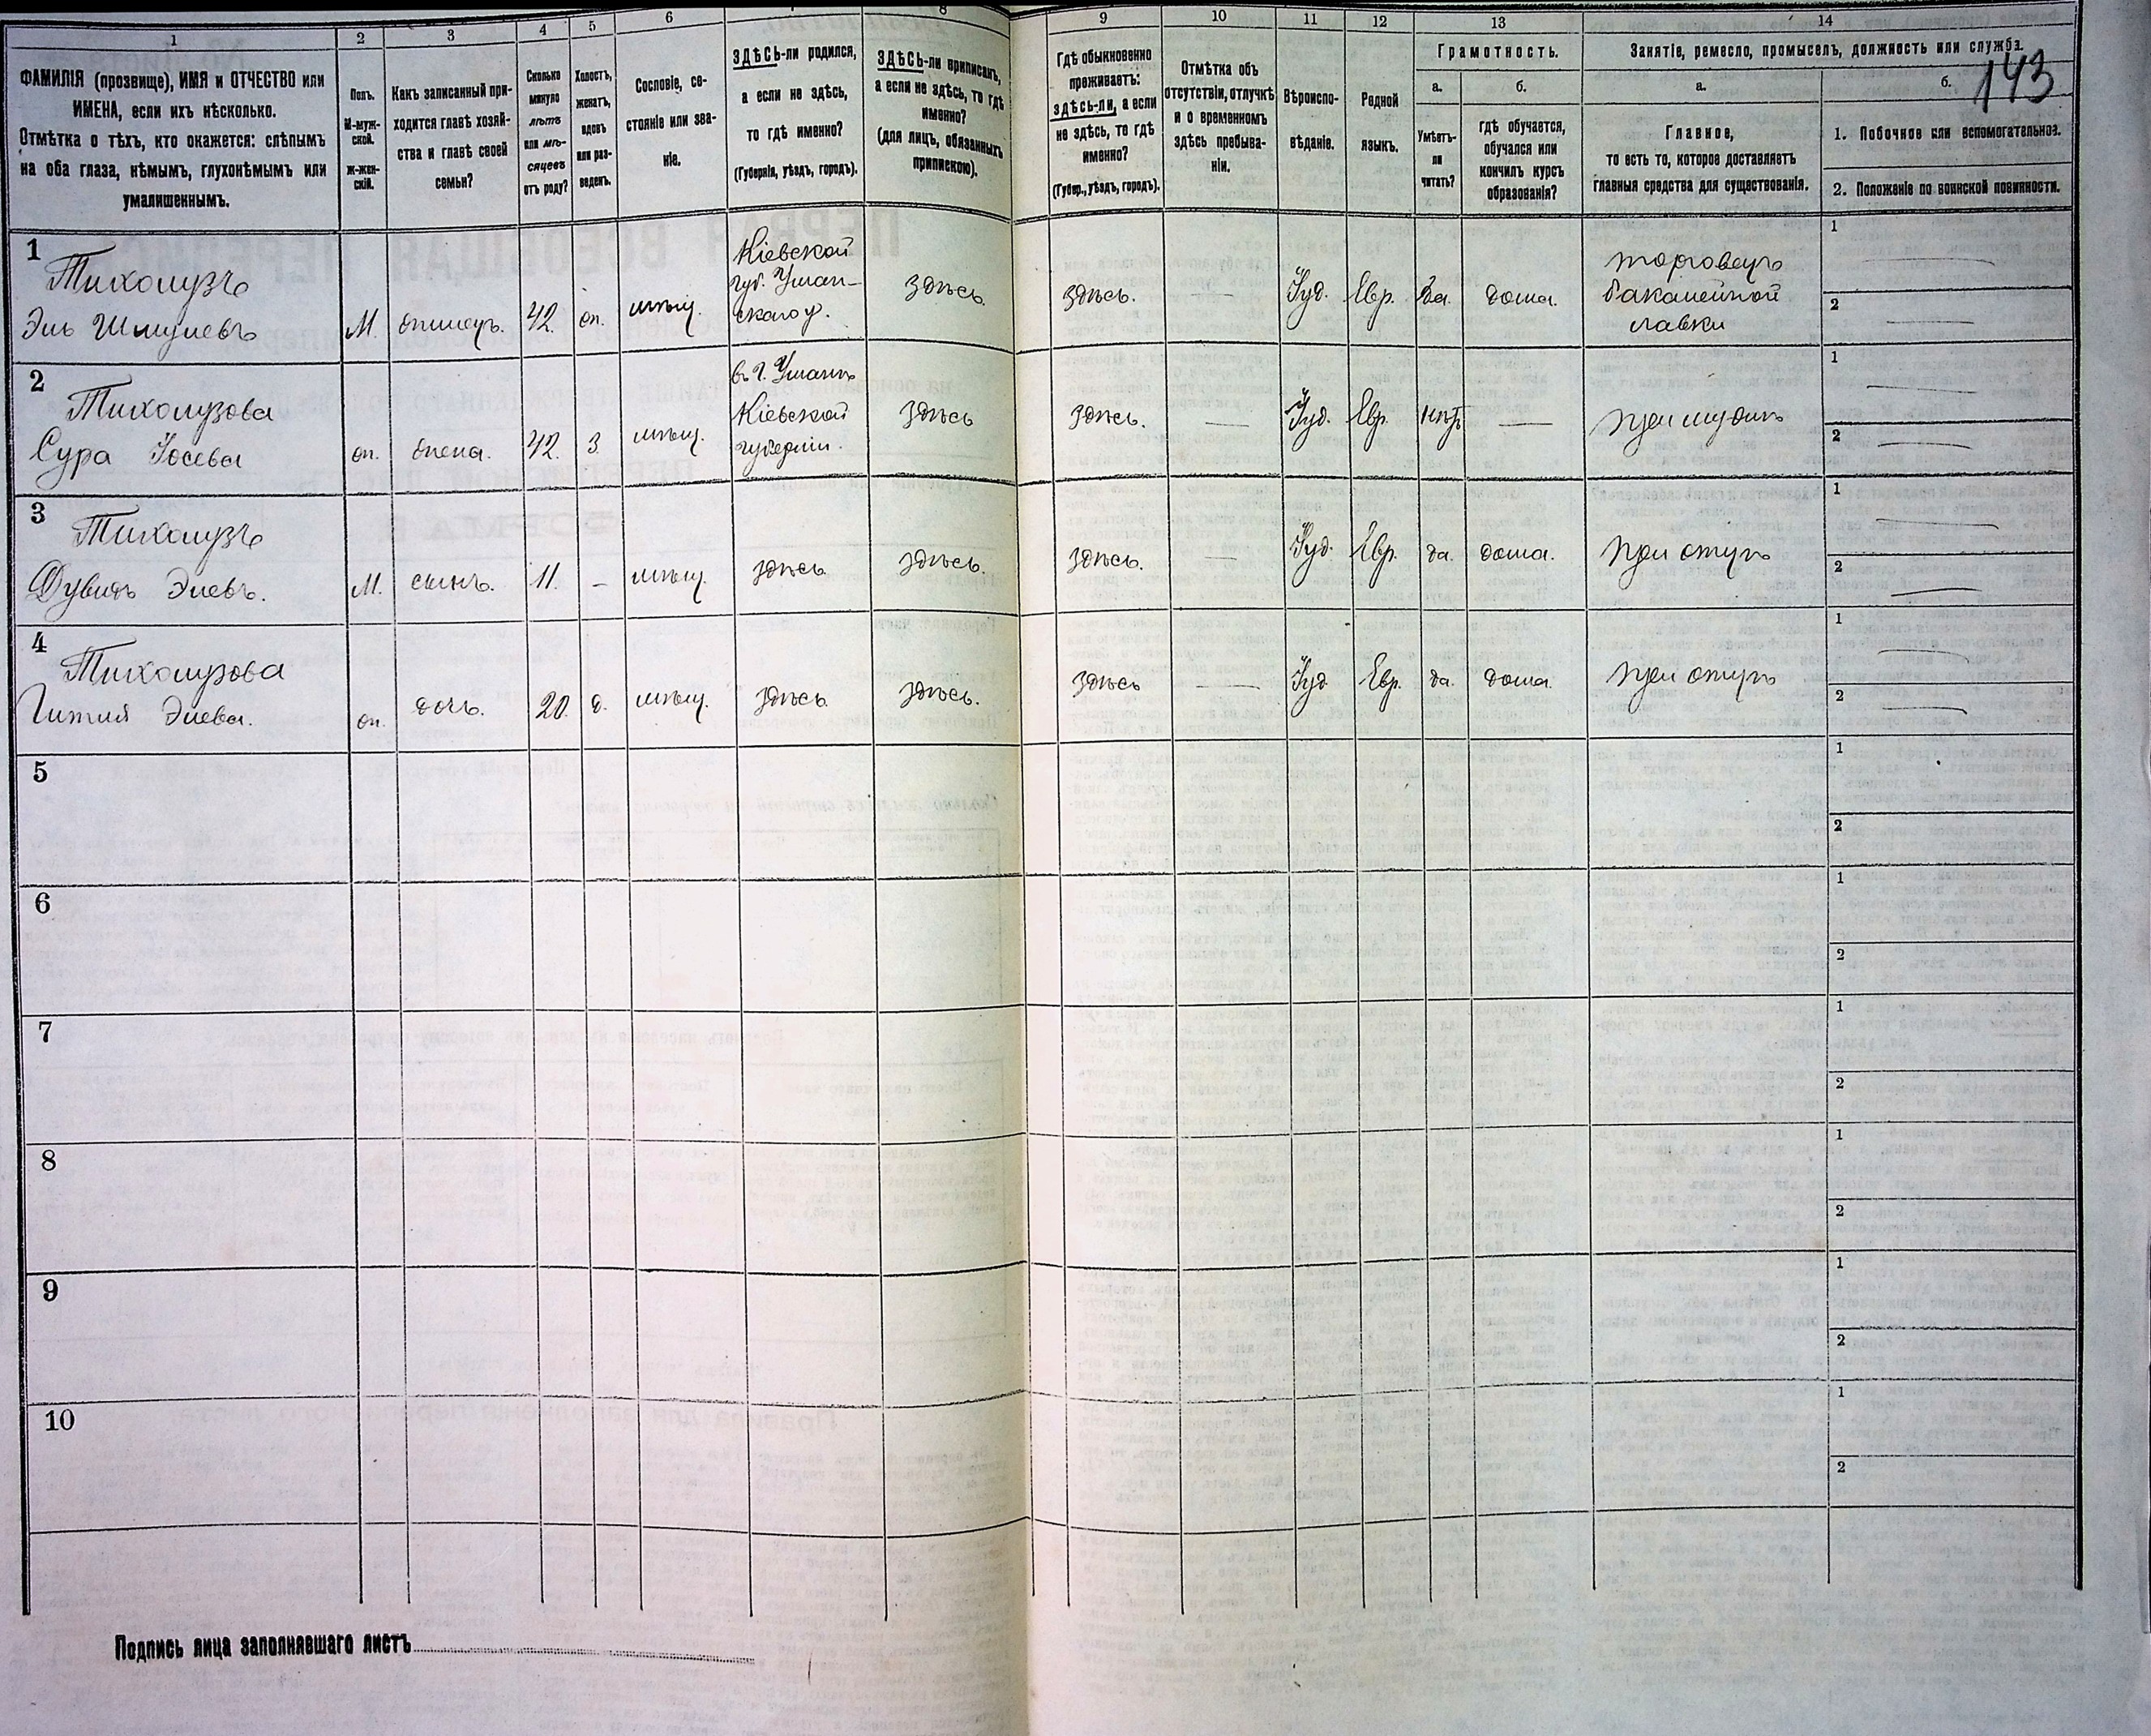 1
2
3
4
5
6
7
8
9
10
11
12
13
14
143
ФАМИЛІЯ (прозвище), ИМЯ и ОТЧЕСТВО или
ИМЕНА, если ихъ нѣсколько.
Отмѣтка о тѣхъ, кто окажется: слѣпымъ
на оба глаза, нѣмымъ, глухонѣмымъ или
умалишеннымъ.
Полъ.
М-муж-
ской.
Ж-жен-
скій.
Какъ записанный при-
ходится главѣ хозяй-
ства и главѣ своей
семьи?
Сколько
минуло
лѣтъ
или мѣ-
сяцевъ
отъ роду?
Холостъ,
женатъ,
вдовъ
или раз-
веденъ.
Сословіе, со-
стояніе или зва-
ніе.
ЗДѢСЬ-ли родился,
а если не здѣсь,
то гдѣ именно?
(Губернія, уѣздъ, городъ).
ЗДѢСЬ-ли приписанъ,
а если не здѣсь, то гдѣ
именно?
(для лицъ, обязанныхъ
припискою).
Гдѣ обыкновенно
проживаетъ:
здѣсь-ли, а если
не здѣсь, то гдѣ
именно?
(Губер., уѣздъ, городъ).
Отмѣтка объ
отсутствіи, отлучкѣ
и о временномъ
здѣсь пребыва-
ніи.
Вѣроиспо-
вѣданіе.
Родной
языкъ.
Грамотность.
а.
б.
Умѣетъ-
ли
читать?
гдѣ обучается,
обучался или
кончилъ курсъ
образованія?
Занятіе, ремесло, промыселъ, должность или служба.
а.
б.
Главное,
то есть то, которое доставляетъ
главныя средства для существованія.
1. Побочное или вспомогательное.
2. Положеніе по воинской повинности.
1
Тихолузъ
Эль Шмулевъ
М.
42.
мѣщ.
Кіевской
губ. Уман-
скаго у.
здѣсь.
здѣсь.
—
Іуд.
Евр.
да.
дома.
торговецъ
бакалейной
лавки
1
2
2
Тихолузова
Сура Іосева
жена.
42.
з
мѣщ.
въ г. Умани
Кіевской
губерніи.
здѣсь
здѣсь.
—
Іуд.
Евр.
нѣтъ
—
при мужѣ
1
2
3
Тихолузъ
Дувидъ Элевъ.
М.
сынъ.
11.
–
мѣщ.
здѣсь
здѣсь.
здѣсь.
—
Іуд.
Евр.
да.
дома.
при отцѣ
1
2
4
Тихолузова
Элева.
дочь.
20.
д.
мѣщ.
здѣсь
здѣсь.
здѣсь
—
Іуд
Евр.
да.
дома.
при отцѣ
1
2
5
1
2
6
1
2
7
1
2
8
1
2
9
1
2
10
1
2
Подпись лица заполнявшаго листъ